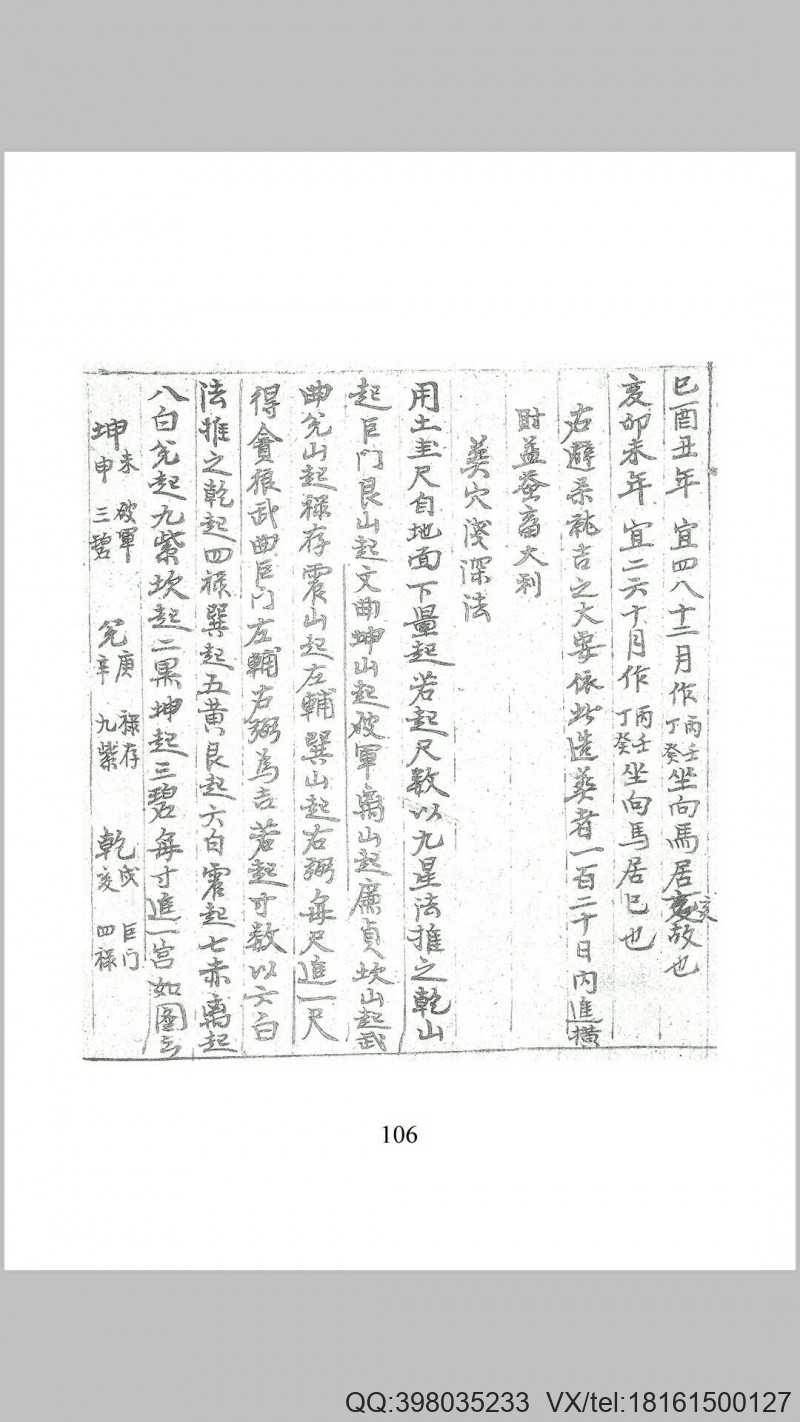 巳酉丑年 宜四八十二月作丙壬丁癸坐向馬居亥故也
亥卯未年 宜二六十月作丙壬丁癸坐向馬居巳也
右避桒就吉之大要依此造葬者一百二十日內進橫
財益蚕畜大利
葬穴淺深法
用土圭尺自地面下量起若起尺数以九星法推之乾山
起巨门艮山起文曲坤山起破軍离山起廉貞坎山起武
曲兊山起禄存震山起左輔巽山起右弼每尺進一尺
得貪狼武曲巨门左輔右弼為吉若起寸数以六白
法推之乾起四禄巽起五黄艮起六白震起七赤离起
八白兊起九紫坎起二黑坤起三碧每寸進一宫如圖
坤未申 破軍三碧 兊庚辛 禄存九紫 乾戌亥 巨门四禄
106
QQ:398035233 VX/tel:18161500127